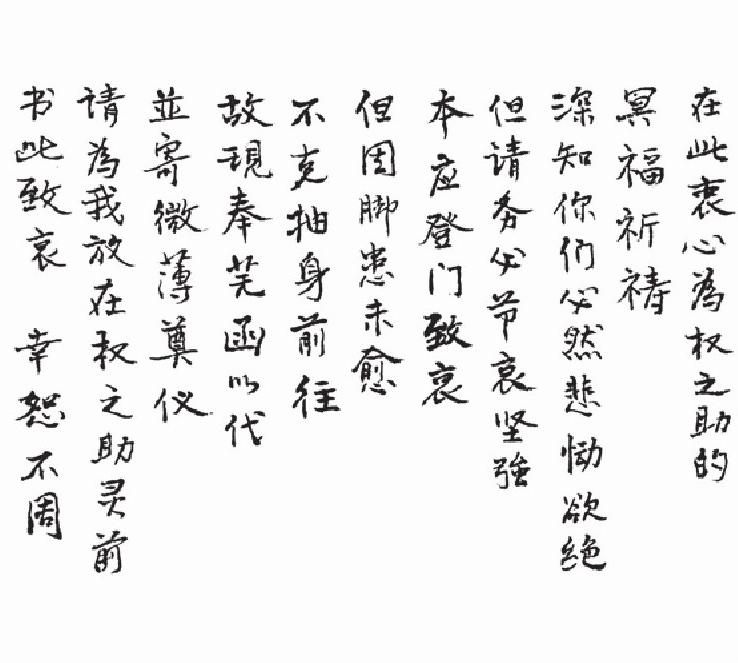 在此衷心為权之助的
冥福祈祷
深知你们必然悲恸欲绝
但请务必节哀坚強
本应登门致哀
但因脚患未愈
不克抽身前往
故現奉芜函以代
並寄微薄奠仪
请為我放在权之助灵前
书此致哀 幸恕不周